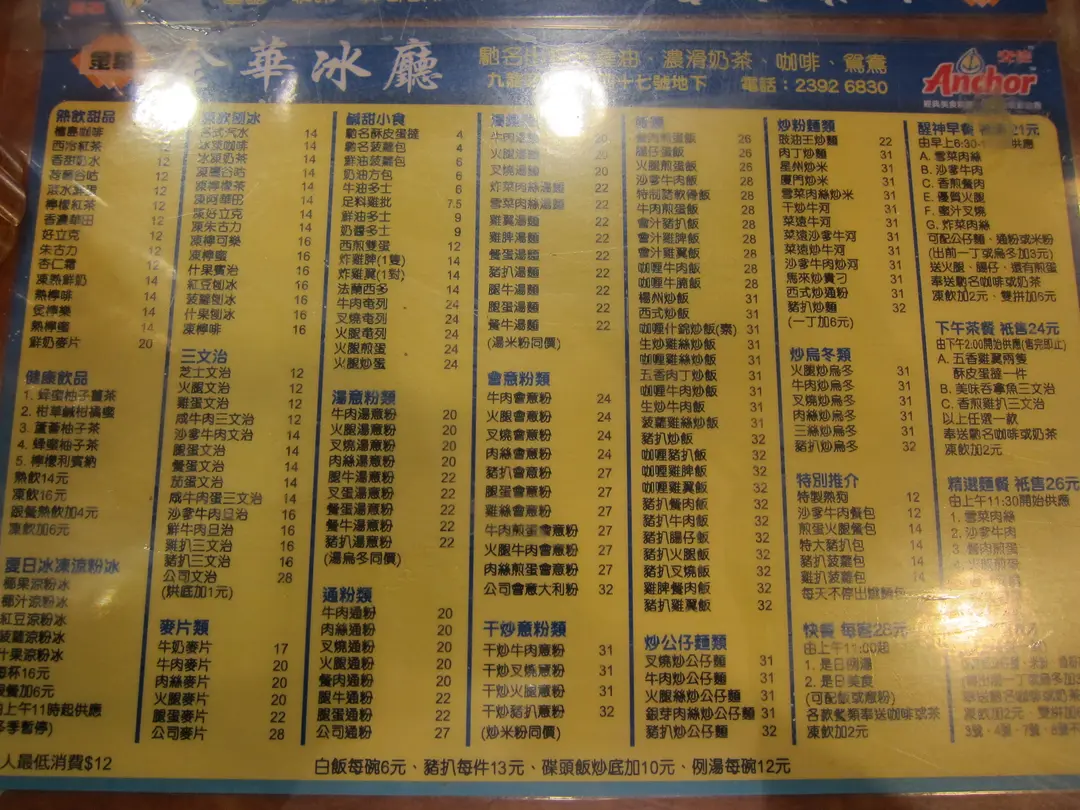 金華冰廳
濃滑奶茶、咖啡、鴛鴦
十七號地下 電話：2392 6830
安佳
Anchor
熱飲甜品
西冷紅茶 12
香甜奶水 12
檸檬紅茶 12
香濃華田 12
好立克 12
朱古力 12
杏仁霜 12
凍熱鮮奶 14
熱檸啡 14
煲檸樂 14
熱檸蜜 14
鮮奶麥片 20
健康飲品
1. 蜂蜜柚子薑茶
2. 柑草鹹柑橘蜜
3. 蘆薈柚子茶
4. 蜂蜜柚子茶
5. 檸檬利賓納
熱飲14元
凍飲16元
跟餐熱飲加4元
凍飲加6元
夏日冰凍涼粉冰
椰果涼粉冰
椰汁涼粉冰
紅豆涼粉冰
菠蘿涼粉冰
什果涼粉冰
每杯16元
跟餐加6元
由上午11時起供應
(冬季暫停)
凍飲刨冰
各式汽水 14
冰凍咖啡 14
冰凍奶茶 14
凍鴛谷咕 14
凍檸檬茶 14
凍阿華田 14
凍好立克 14
凍朱古力 14
凍檸可樂 16
凍檸蜜 16
什果賓治 16
紅豆刨冰 16
菠蘿刨冰 16
什果刨冰 16
凍檸啡 16
三文治
芝士文治 12
火腿文治 12
雞蛋文治 12
咸牛肉三文治 12
沙爹牛肉文治 14
腿蛋文治 14
餐蛋文治 14
茄蛋文治 14
咸牛肉蛋三文治 14
沙爹牛肉旦治 16
鮮牛肉旦治 16
雞扒三文治 16
豬扒三文治 16
公司文治 28
(烘底加1元)
麥片類
牛奶麥片 17
牛肉麥片 20
肉絲麥片 20
火腿麥片 20
腿蛋麥片 22
公司麥片 28
鹹甜小食
馳名酥皮蛋撻 4
馳名菠蘿包 4
鮮油菠蘿包 6
奶油方包 6
牛油多士 6
足料雞批 7.5
鮮油多士 9
奶醬多士 9
西煎雙蛋 12
炸雞脾(1隻) 14
炸雞翼(1對) 14
法蘭西多 14
牛肉奄列 24
叉燒奄列 24
火腿奄列 24
火腿煎蛋 24
火腿炒蛋 24
湯意粉類
牛肉湯意粉 20
火腿湯意粉 20
叉燒湯意粉 20
肉絲湯意粉 20
腿牛湯意粉 22
叉蛋湯意粉 22
餐蛋湯意粉 22
餐牛湯意粉 22
豬扒湯意粉 22
(湯烏冬同價)
通粉類
牛肉通粉 20
肉絲通粉 20
叉燒通粉 20
火腿通粉 20
餐肉通粉 20
腿牛通粉 22
腿蛋通粉 22
公司通粉 27
牛肉湯麵 20
火腿湯麵 20
叉燒湯麵 20
炸菜肉絲湯麵 22
雪菜肉絲湯麵 22
雞翼湯麵 22
雞脾湯麵 22
餐蛋湯麵 22
豬扒湯麵 22
腿牛湯麵 22
腿蛋湯麵 22
餐牛湯麵 22
(湯米粉同價)
會意粉類
牛肉會意粉 24
火腿會意粉 24
叉燒會意粉 24
肉絲會意粉 24
豬扒會意粉 27
腿蛋會意粉 27
雞絲會意粉 27
牛肉煎蛋會意粉 27
火腿牛肉會意粉 27
肉絲煎蛋會意粉 27
公司會意大利粉 32
干炒意粉類
干炒牛肉意粉 31
干炒叉燒意粉 31
干炒火腿意粉 31
干炒豬扒意粉 32
(炒米粉同價)
飯類
餐肉煎蛋飯 26
腸仔蛋飯 26
火腿煎蛋飯 26
沙爹牛肉飯 28
特制豬軟骨飯 28
牛肉煎蛋飯 28
會汁豬扒飯 28
會汁雞脾飯 28
會汁雞翼飯 28
咖喱牛肉飯 28
咖喱牛腩飯 28
楊州炒飯 31
西式炒飯 31
咖喱什錦炒飯(素) 31
生炒雞絲炒飯 31
咖喱雞絲炒飯 31
五香肉丁炒飯 31
咖喱牛肉炒飯 31
生炒牛肉飯 31
菠蘿雞絲炒飯 31
豬扒炒飯 32
咖喱豬扒飯 32
咖喱雞脾飯 32
咖喱雞翼飯 32
豬扒餐肉飯 32
豬扒牛肉飯 32
豬扒腸仔飯 32
豬扒火腿飯 32
豬扒叉燒飯 32
雞脾餐肉飯 32
豬扒雞翼飯 32
炒公仔麵類
叉燒炒公仔麵 31
牛肉炒公仔麵 31
火腿絲炒公仔麵 31
銀芽肉絲炒公仔麵 31
豬扒炒公仔麵 32
炒粉麵類
豉油王炒麵 22
肉丁炒麵 31
星州炒米 31
廈門炒米 31
雪菜肉絲炒米 31
干炒牛河 31
菜遠牛河 31
菜遠沙爹牛河 31
菜遠炒牛河 31
沙爹牛肉炒河 31
馬來炒貴刁 31
西式炒通粉 31
豬扒炒麵 32
(一丁加6元)
炒烏冬類
火腿炒烏冬 31
牛肉炒烏冬 31
叉燒炒烏冬 31
肉絲炒烏冬 31
三絲炒烏冬 31
豬扒炒烏冬 32
特別推介
特製熱狗 12
沙爹牛肉餐包 14
煎蛋火腿餐包 14
特大豬扒包 14
豬扒菠蘿包 14
雞扒菠蘿包 14
每天不停出爐麵包
快餐 每客28元
由上午11:00起
1. 是日例湯
2. 是日美食
(可配飯或意粉)
各款餐類奉送咖啡或茶
凍飲加2元
醒神早餐 祗售21元
由早上6:30 供應
A. 雪菜肉絲
B. 沙爹牛肉
C. 香煎餐肉
E. 優質火腿
F. 蜜汁叉燒
G. 炸菜肉絲
可配公仔麵、通粉或米粉
(出前一丁或烏冬加3元)
送火腿、腸仔、還有煎蛋
奉送馳名咖啡或奶茶
凍飲加2元、雙拼加6元
下午茶餐 祗售24元
由下午2.00開始供應(售完即止)
A. 五香雞翼兩隻
酥皮蛋撻一件
B. 美味吞拿魚三文治
C. 香煎雞扒三文治
以上任選一款
奉送馳名咖啡或奶茶
凍飲加2元
精選麵餐 祗售26元
由上午11:30開始供應
1. 雪菜肉絲
2. 沙爹牛肉
3. 餐肉煎蛋
4. 火腿煎蛋
奉送馳名咖啡或奶茶
凍飲加2元
人最低消費$12
白飯每碗6元、豬扒每件13元、碟頭飯炒底加10元、例湯每碗12元